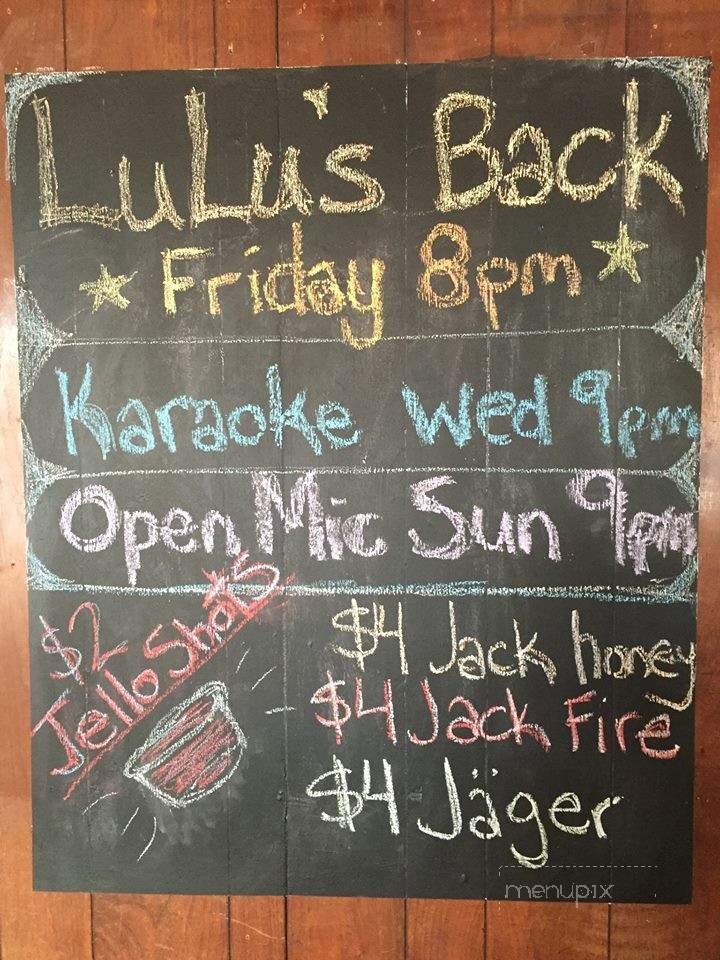 LuLu's Back
Friday 8pm
Karaoke Wed 9pm
Open Mic Sun 9pm
$2
Jello Shots
$4 Jack honey
$4 Jack Fire
$4 Jäger
menupix